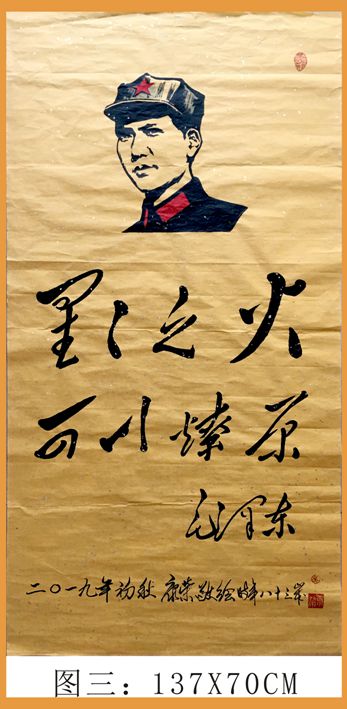 星星之火
可以燎原
毛泽东
二〇一九年初秋 康荣敬绘时年八十三岁
图三：137X70CM